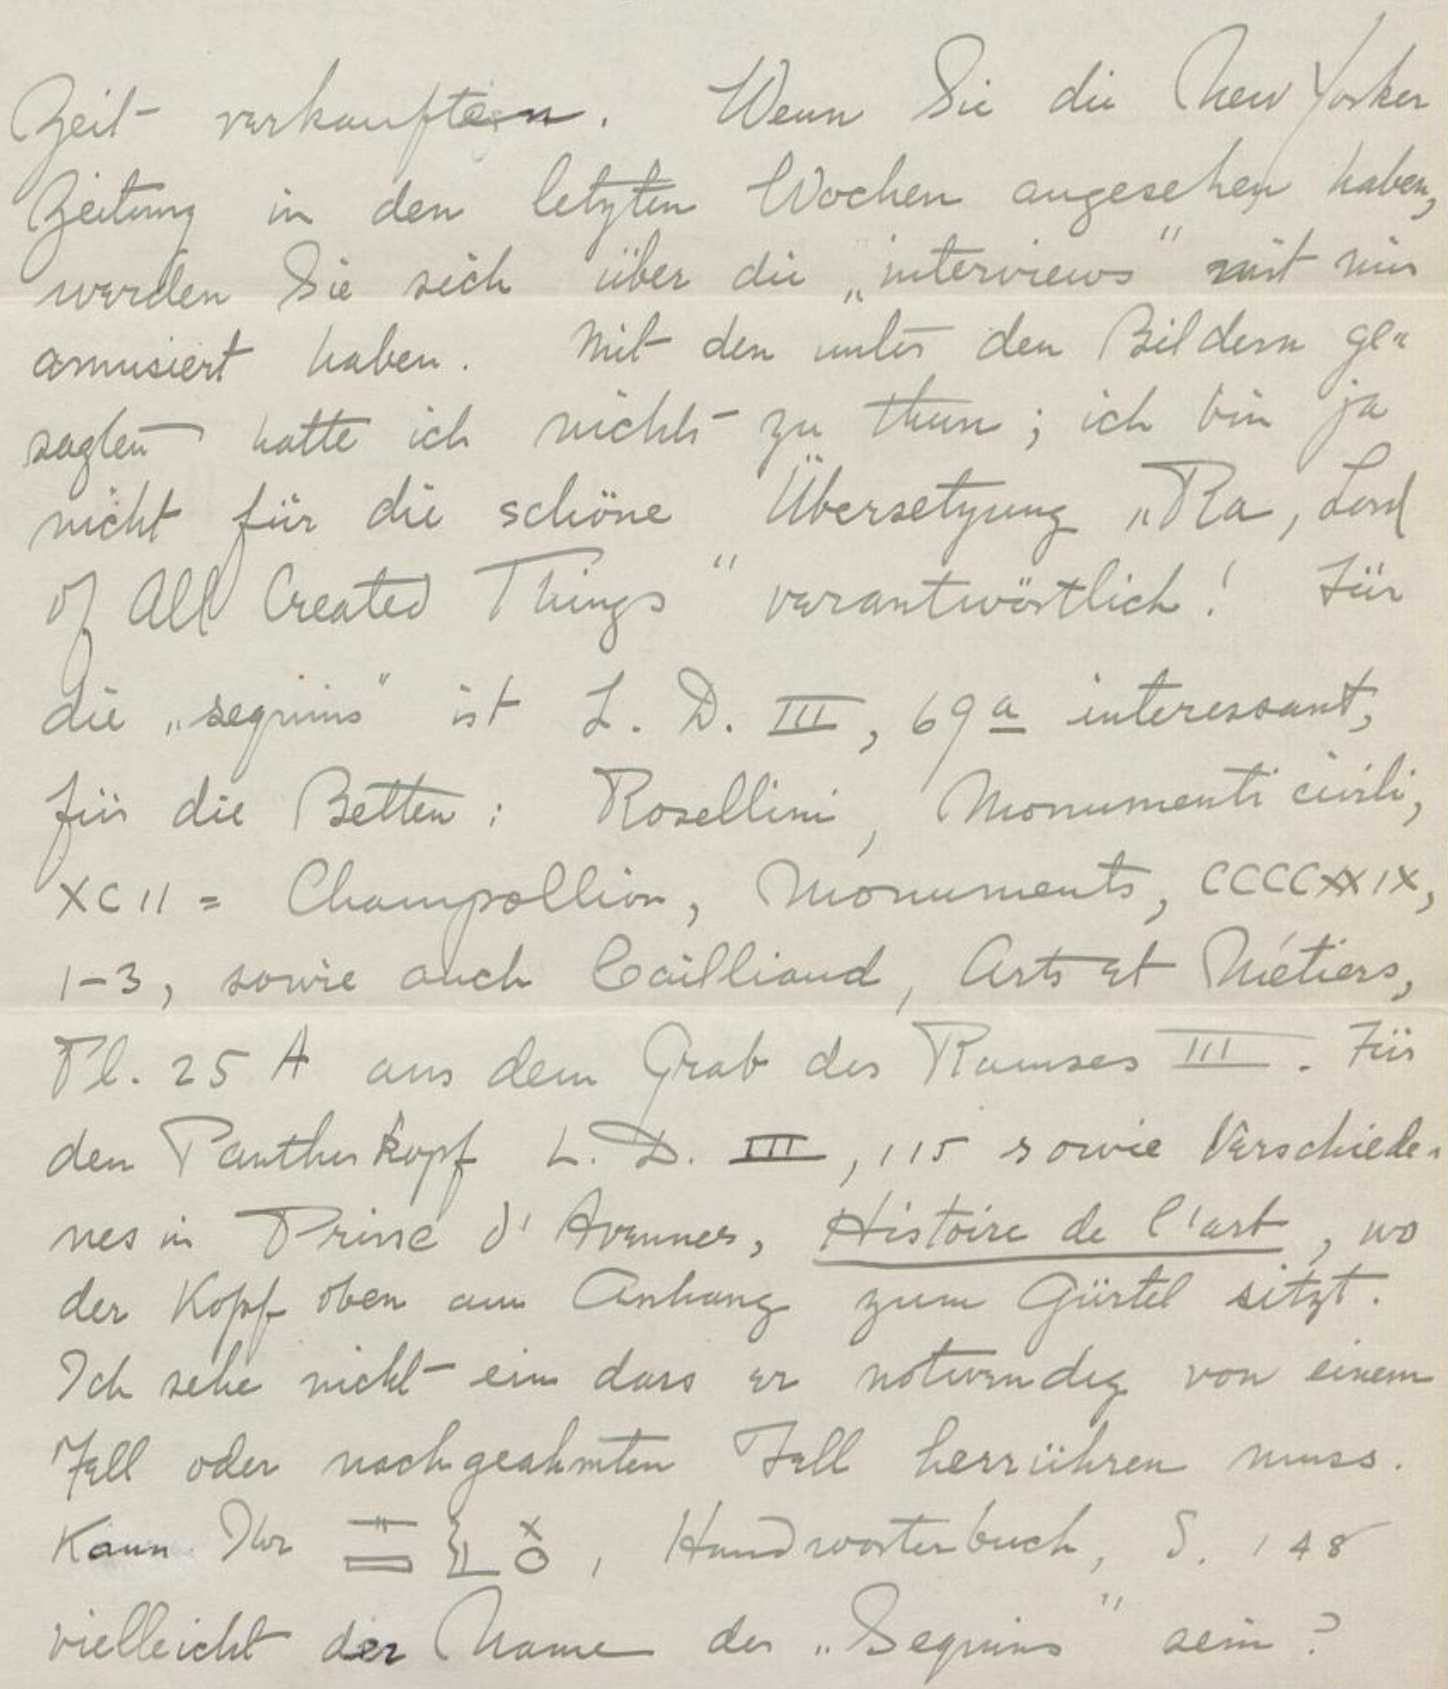 Zeit verkauften. Wenn Sie die New Yorker
Zeitung in den letzten Wochen angesehen haben,
werden Sie sich über die „interviews" mit mir
amusiert haben. Mit den unter den Bildern ge-
sagten hatte ich nichts zu thun; ich bin ja
nicht für die schöne Übersetzung „Ra, Lord
of All Created Things" verantwörtlich! Für
die „sequins" ist L. D. III, 69a interessant,
für die Betten: Rosellini, Monumenti civili,
XCII = Champollion, Monuments, CCCCXXIX,
1-3, sowie auch Cailliaud, Arts et Métiers,
Pl. 25 A aus dem Grab des Ramses III. Für
den Pantherkopf L. D. III, 115 sowie Verschiede-
nes in Prisse d'Avennes, Histoire de l'art, wo
der Kopf oben am Anhang zum Gürtel sitzt.
Ich sehe nicht ein dass er notwendig von einem
Fell oder nachgeahmten Fell herrühren muss.
Kann Ihr , Handworterbuch, S. 148
vielleicht der Name der „Sequins" sein?